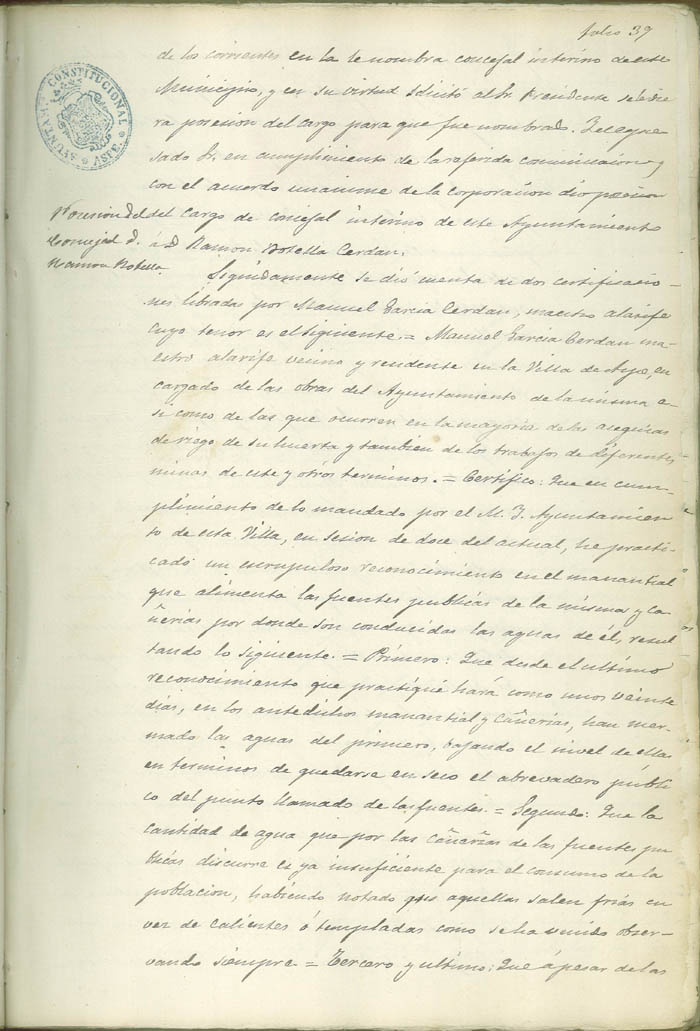 folio 39
AYUNTAMᵗᵒ CONSTITUCIONAL * ASPE *
de los corrientes en la te nombra concejal interino de este
Municipio, y en su virtud solicitó al Sr. Presidente se le die
ra posesion del cargo para que fue nombrado. Y el expre
sado Sr. en cumplimiento de la referida comunicacion y
con el acuerdo unanime de la corporacion dio posesion
Posesion del
Concejal D.
Ramon Botella
del cargo de concejal interino de este Ayuntamiento
á D Ramon Botella Cerdan.
Seguidamente se dió cuenta de dos certificacio
nes libradas por Manuel Garcia Cerdan, maestro alarife
cuyo tenor es el siguiente. = Manuel Garcia Cerdan ma-
estro alarife vecino y residente en la Villa de Aspe, en
cargado de las obras del Ayuntamiento de la misma a-
si como de las que ocurren en la mayoria de las acequias
de riego de su huerta y tambien de los trabajos de diferentes
minas de este y otros terminos. = Certifico: Que en cum-
plimiento de lo mandado por el M. Y. Ayuntamien
to de esta Villa, en sesion de doce del actual, he practi-
cado un escrupuloso reconocimiento en el manantial
que alimenta las fuentes publicas de la misma y ca
ñerias por donde son conducidas las aguas de él, resul
tando lo siguiente. = Primero: Que desde el ultimo
reconocimiento que practiqué hará como unos veinte
dias, en los antedichos manantial y cañerias, han mer-
mado las aguas del primero, bajando el nivel de ellas
en terminos de quedarse en seco el abrevadero públi
co del punto llamado de las fuentes. = Segundo: Que la
cantidad de agua que por las cañerias de las fuentes pu
blicas discurre es ya insuficiente para el consumo de la
poblacion, habiendo notado que aquellas salen frias en
vez de calientes ó templadas como se ha venido obser-
vando siempre = Tercero y ultimo: Que á pesar de las